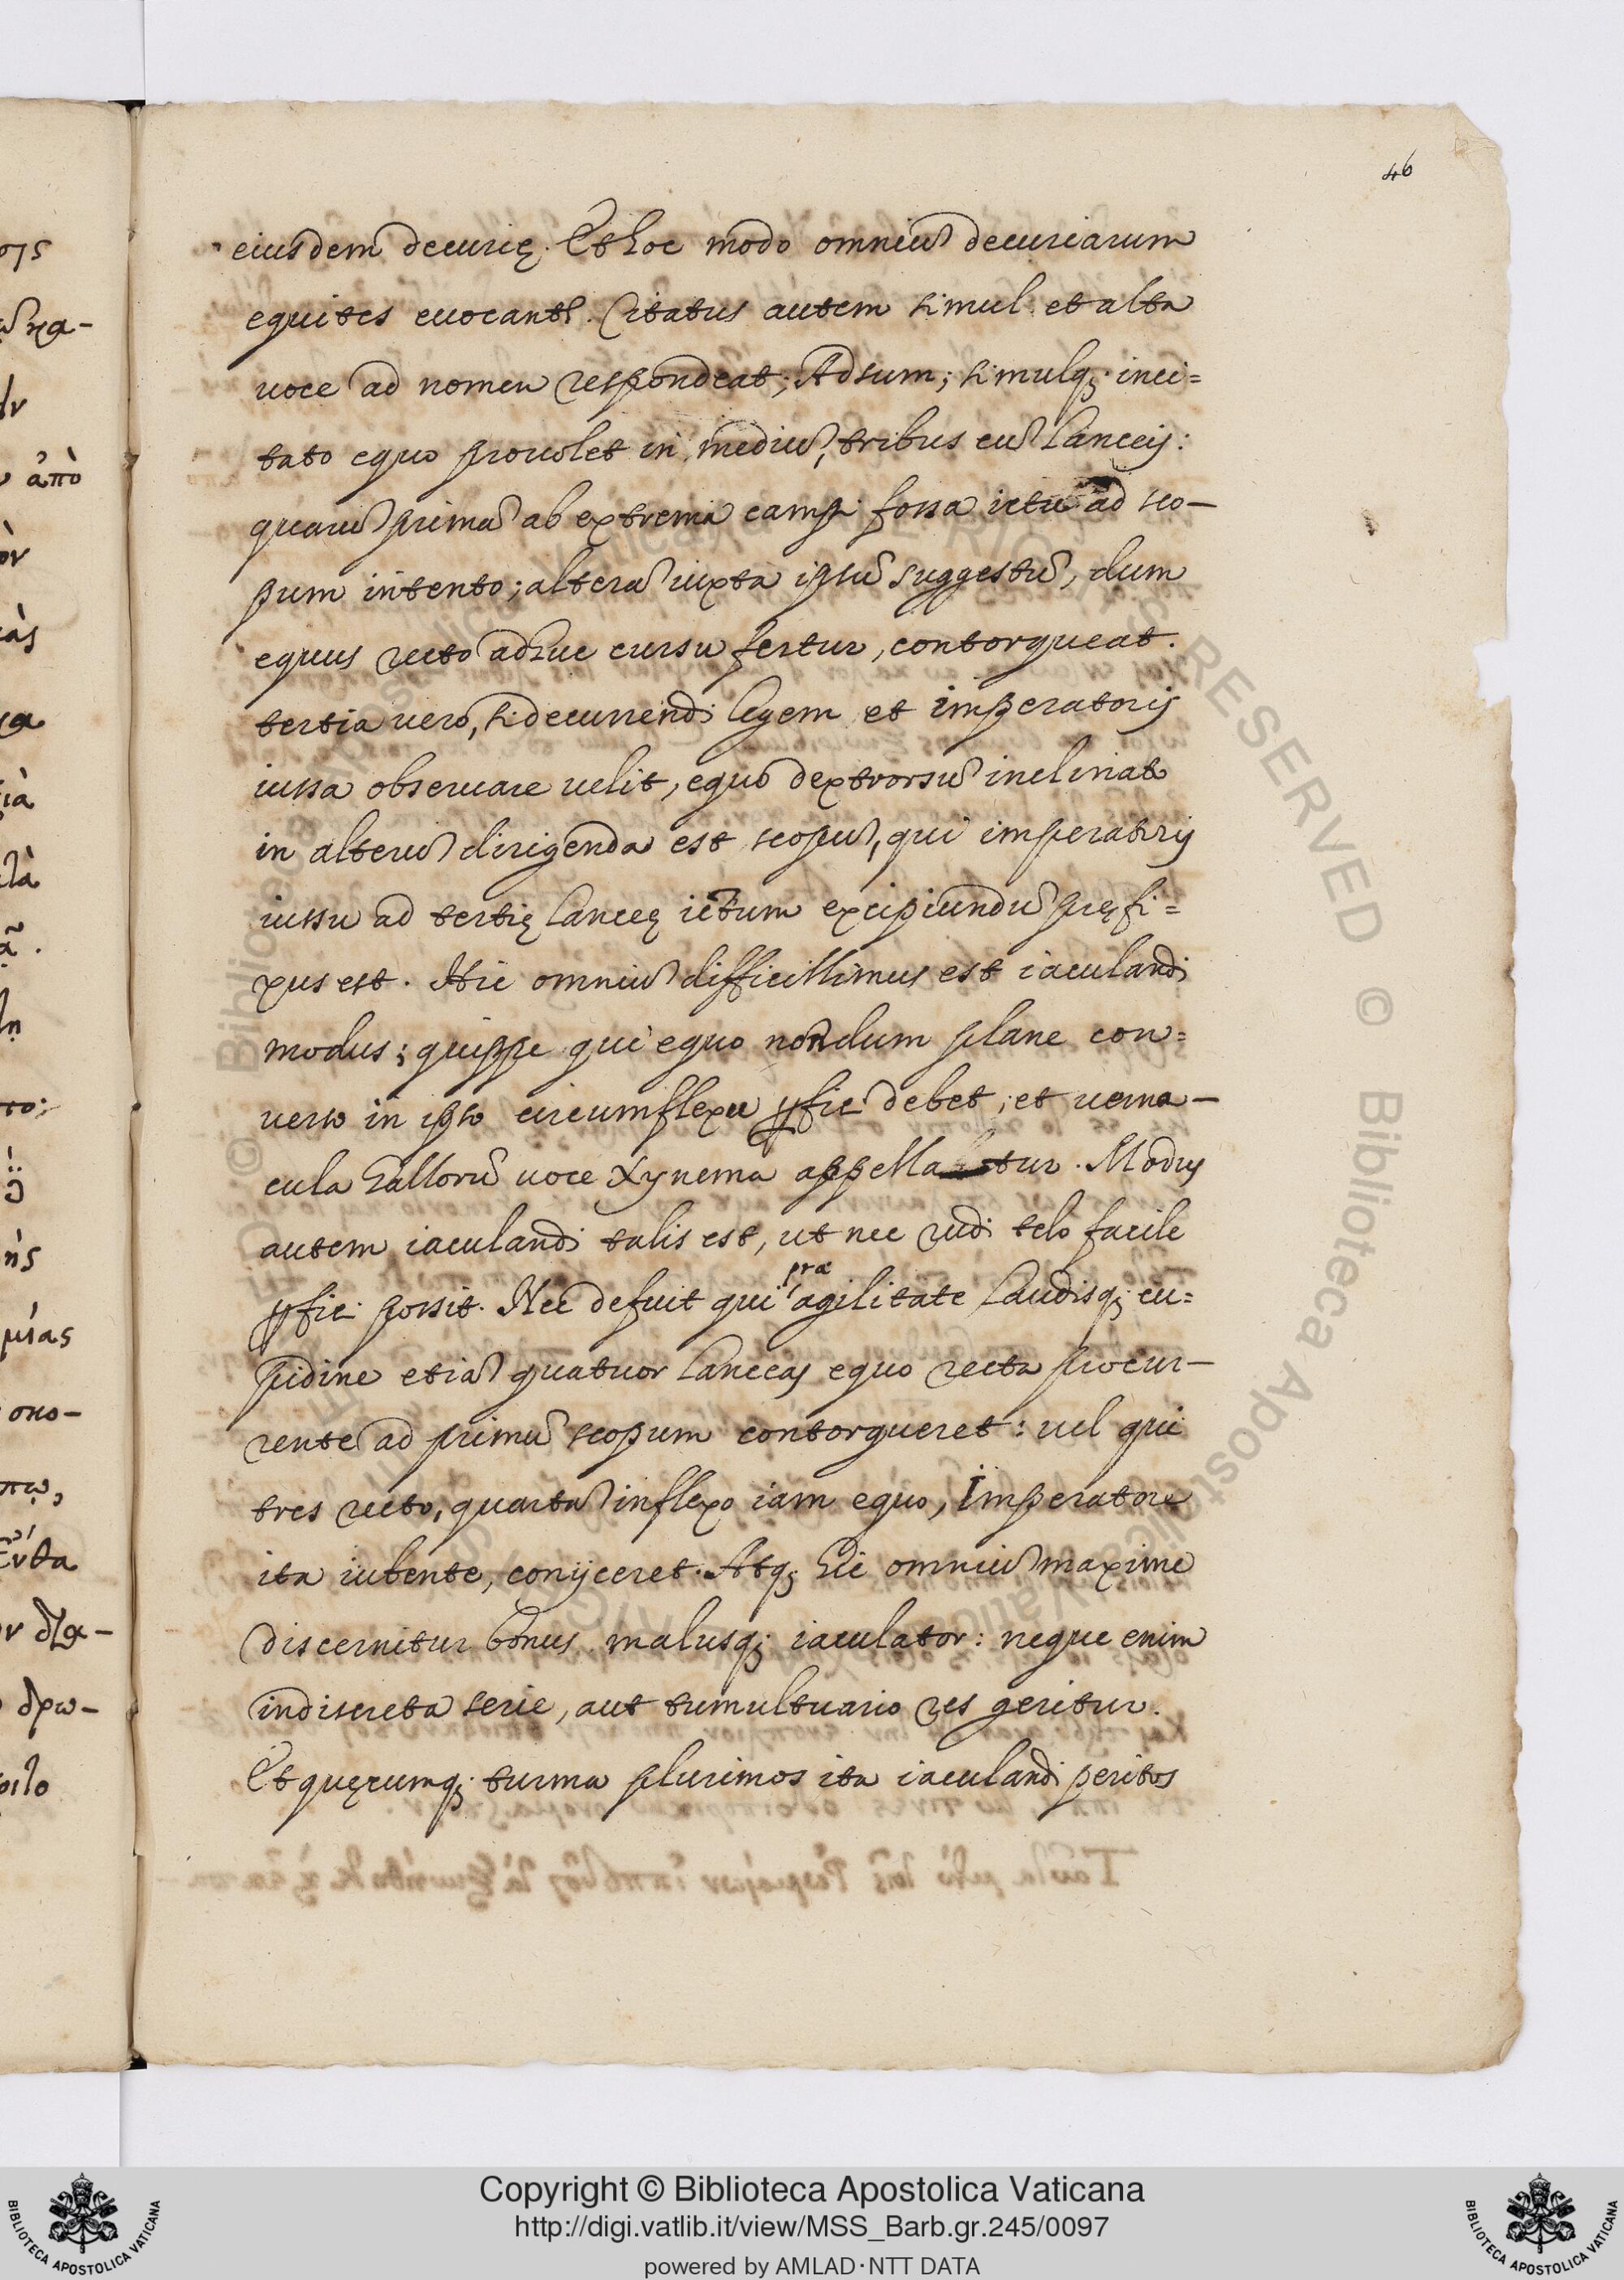 46
eiusdem decurię. Et hoc modo omniũ decuriarum
equites euocantr. Citatus autem simul et alta
uoce ad nomen respondeat; Adsum; simulq; inci=
tato equo prouolet in mediũ, tribus cũ lanceis:
quarũ primã ab extrema campi fossa ictu ad sco-
pum intento; alterã iuxta ipsũ suggestũ, dum
equus recto adhuc cursu fertur, contorqueat.
tertia uero, si decurrendi legem et imperatoris
iussa obseruare uelit, equo dextrorsũ inclinato
in alterũ dirigenda est scopũ, qui imperatoris
iussu ad tertię lanceę ictum excipiundũ pręfi=
xus est. Hic omniũ difficillimus est iaculandi
modus; quippe qui equo nondum plane con=
uerso in ipso circumflexu ꝑfici debet; et uerna-
cula Gallorũ uoce Xynema appellatur. Modus
autem iaculandi talis est, ut nec rudi telo facile
ꝑfici possit. Nec defuit qui præ agilitate laudisq; cu=
pidine etiã quatuor lanceas equo recta procur-
rente ad primũ scopum contorqueret: uel qui
tres recto, quartã inflexo iam equo, Imperatore
ita iubente, conijceret. Atq; hic omniũ maxime
discernitur bonus malusq; iaculator: neque enim
indiscreta serie, aut tumultuario res geritur.
Et quęcumq; turma plurimos ita iaculandi peritos
σης
ἀπὸ
μίας
σκο-
δρω-
Copyright © Biblioteca Apostolica Vaticana
http://digi.vatlib.it/view/MSS_Barb.gr.245/0097
powered by AMLAD·NTT DATA
BIBLIOTECA APOSTOLICA VATICANA
BIBLIOTECA APOSTOLICA VATICANA